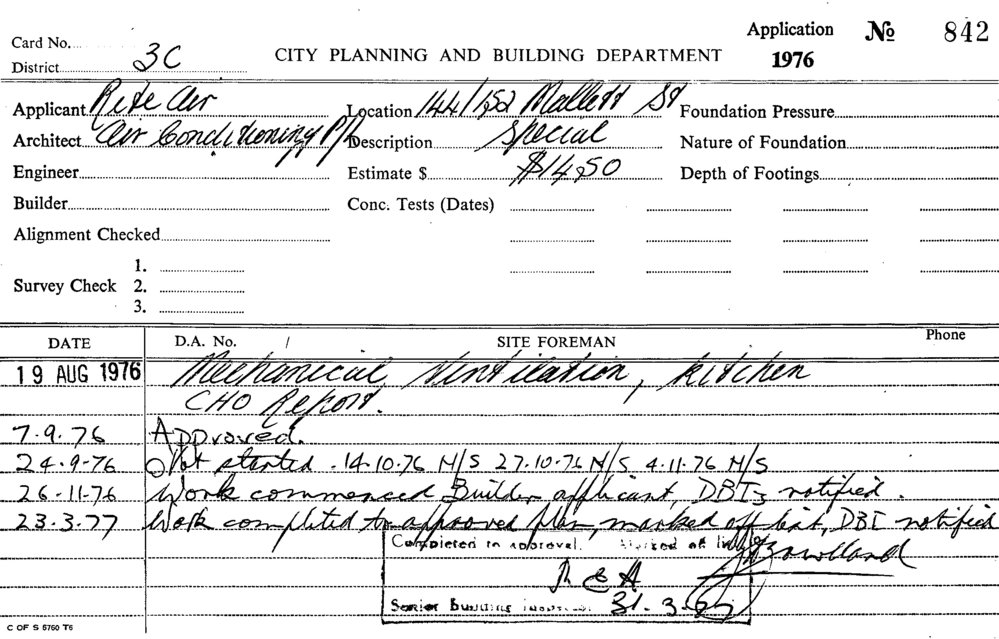 Card No.
District 3C
CITY PLANNING AND BUILDING DEPARTMENT
Application 1976
No 842
Applicant Rite Air
Location 144/152 Mallett St
Foundation Pressure
Architect Air Conditioning P/L
Description Special
Nature of Foundation
Engineer
Estimate $ $1450
Depth of Footings
Builder
Conc. Tests (Dates)
Alignment Checked
Survey Check 1.
2.
3.
DATE D.A. No. / SITE FOREMAN Phone
19 AUG 1976 Mechanical Ventilation, Kitchen
CHO Report.
7.9.76 Approved.
24.9.76 Not started. 14.10.76 N/S 27.10.76 N/S 4.11.76 N/S
26.11.76 Work commenced Builder applicant, DBI notified.
23.3.77 Work completed to approved plan, marked off list, DBI notified
Completed to approval. Marked off list
Senior Building Inspector 31.3.
C OF S 5760 T6